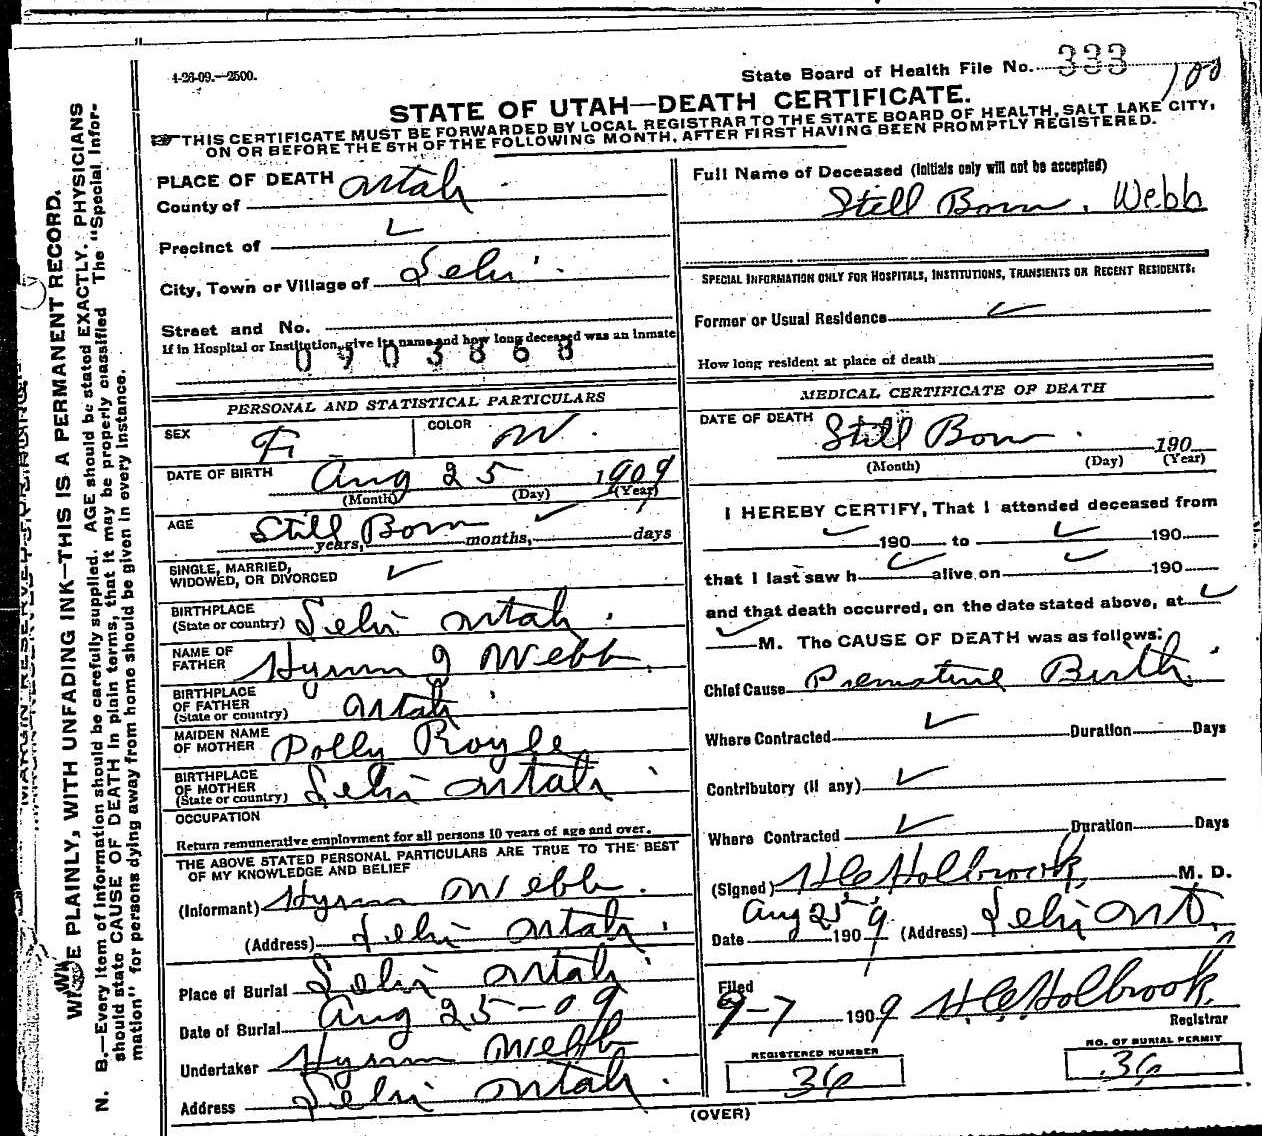 1-26-09.—2500.
State Board of Health File No. 333
100
STATE OF UTAH—DEATH CERTIFICATE.
THIS CERTIFICATE MUST BE FORWARDED BY LOCAL REGISTRAR TO THE STATE BOARD OF HEALTH, SALT LAKE CITY,
ON OR BEFORE THE 5TH OF THE FOLLOWING MONTH, AFTER FIRST HAVING BEEN PROMPTLY REGISTERED.
PLACE OF DEATH
County of Utah
Precinct of
City, Town or Village of Lehi
Street and No.
If in Hospital or Institution, give its name and how long deceased was an inmate
0903868
PERSONAL AND STATISTICAL PARTICULARS
SEX F. COLOR W.
DATE OF BIRTH Aug 25 1909
(Month) (Day) (Year)
AGE Still Born
years, months, days
SINGLE, MARRIED,
WIDOWED, OR DIVORCED
BIRTHPLACE
(State or country) Lehi Utah.
NAME OF
FATHER Hyrum J Webb.
BIRTHPLACE
OF FATHER
(State or country) Utah
MAIDEN NAME
OF MOTHER Polly Royle
BIRTHPLACE
OF MOTHER
(State or country) Lehi Utah
OCCUPATION
Return remunerative employment for all persons 10 years of age and over.
THE ABOVE STATED PERSONAL PARTICULARS ARE TRUE TO THE BEST
OF MY KNOWLEDGE AND BELIEF
(Informant) Hyrum Webb.
(Address) Lehi Utah.
Place of Burial Lehi Utah
Date of Burial Aug 25-09
Undertaker Hyrum Webb
Address Lehi Utah.
Full Name of Deceased (Initials only will not be accepted)
Still Born. Webb
SPECIAL INFORMATION ONLY FOR HOSPITALS, INSTITUTIONS, TRANSIENTS OR RECENT RESIDENTS:
Former or Usual Residence
How long resident at place of death
MEDICAL CERTIFICATE OF DEATH
DATE OF DEATH Still Born. 190
(Month) (Day) (Year)
I HEREBY CERTIFY, That I attended deceased from
190 to 190
that I last saw h alive on 190
and that death occurred, on the date stated above, at
M. The CAUSE OF DEATH was as follows:
Chief Cause Premature Birth.
Where Contracted Duration Days
Contributory (if any)
Where Contracted Duration Days
(Signed) H C Holbrook, M. D.
Date Aug 25 1909 (Address) Lehi Ut.
Filed
9-7 1909 H. C. Holbrook,
Registrar
REGISTERED NUMBER
36
NO. OF BURIAL PERMIT
36
(OVER)
WRITE PLAINLY, WITH UNFADING INK—THIS IS A PERMANENT RECORD.
N. B.—Every item of information should be carefully supplied. AGE should be stated EXACTLY. PHYSICIANS
should state CAUSE OF DEATH in plain terms, that it may be properly classified The "Special Infor-
mation" for persons dying away from home should be given in every instance.